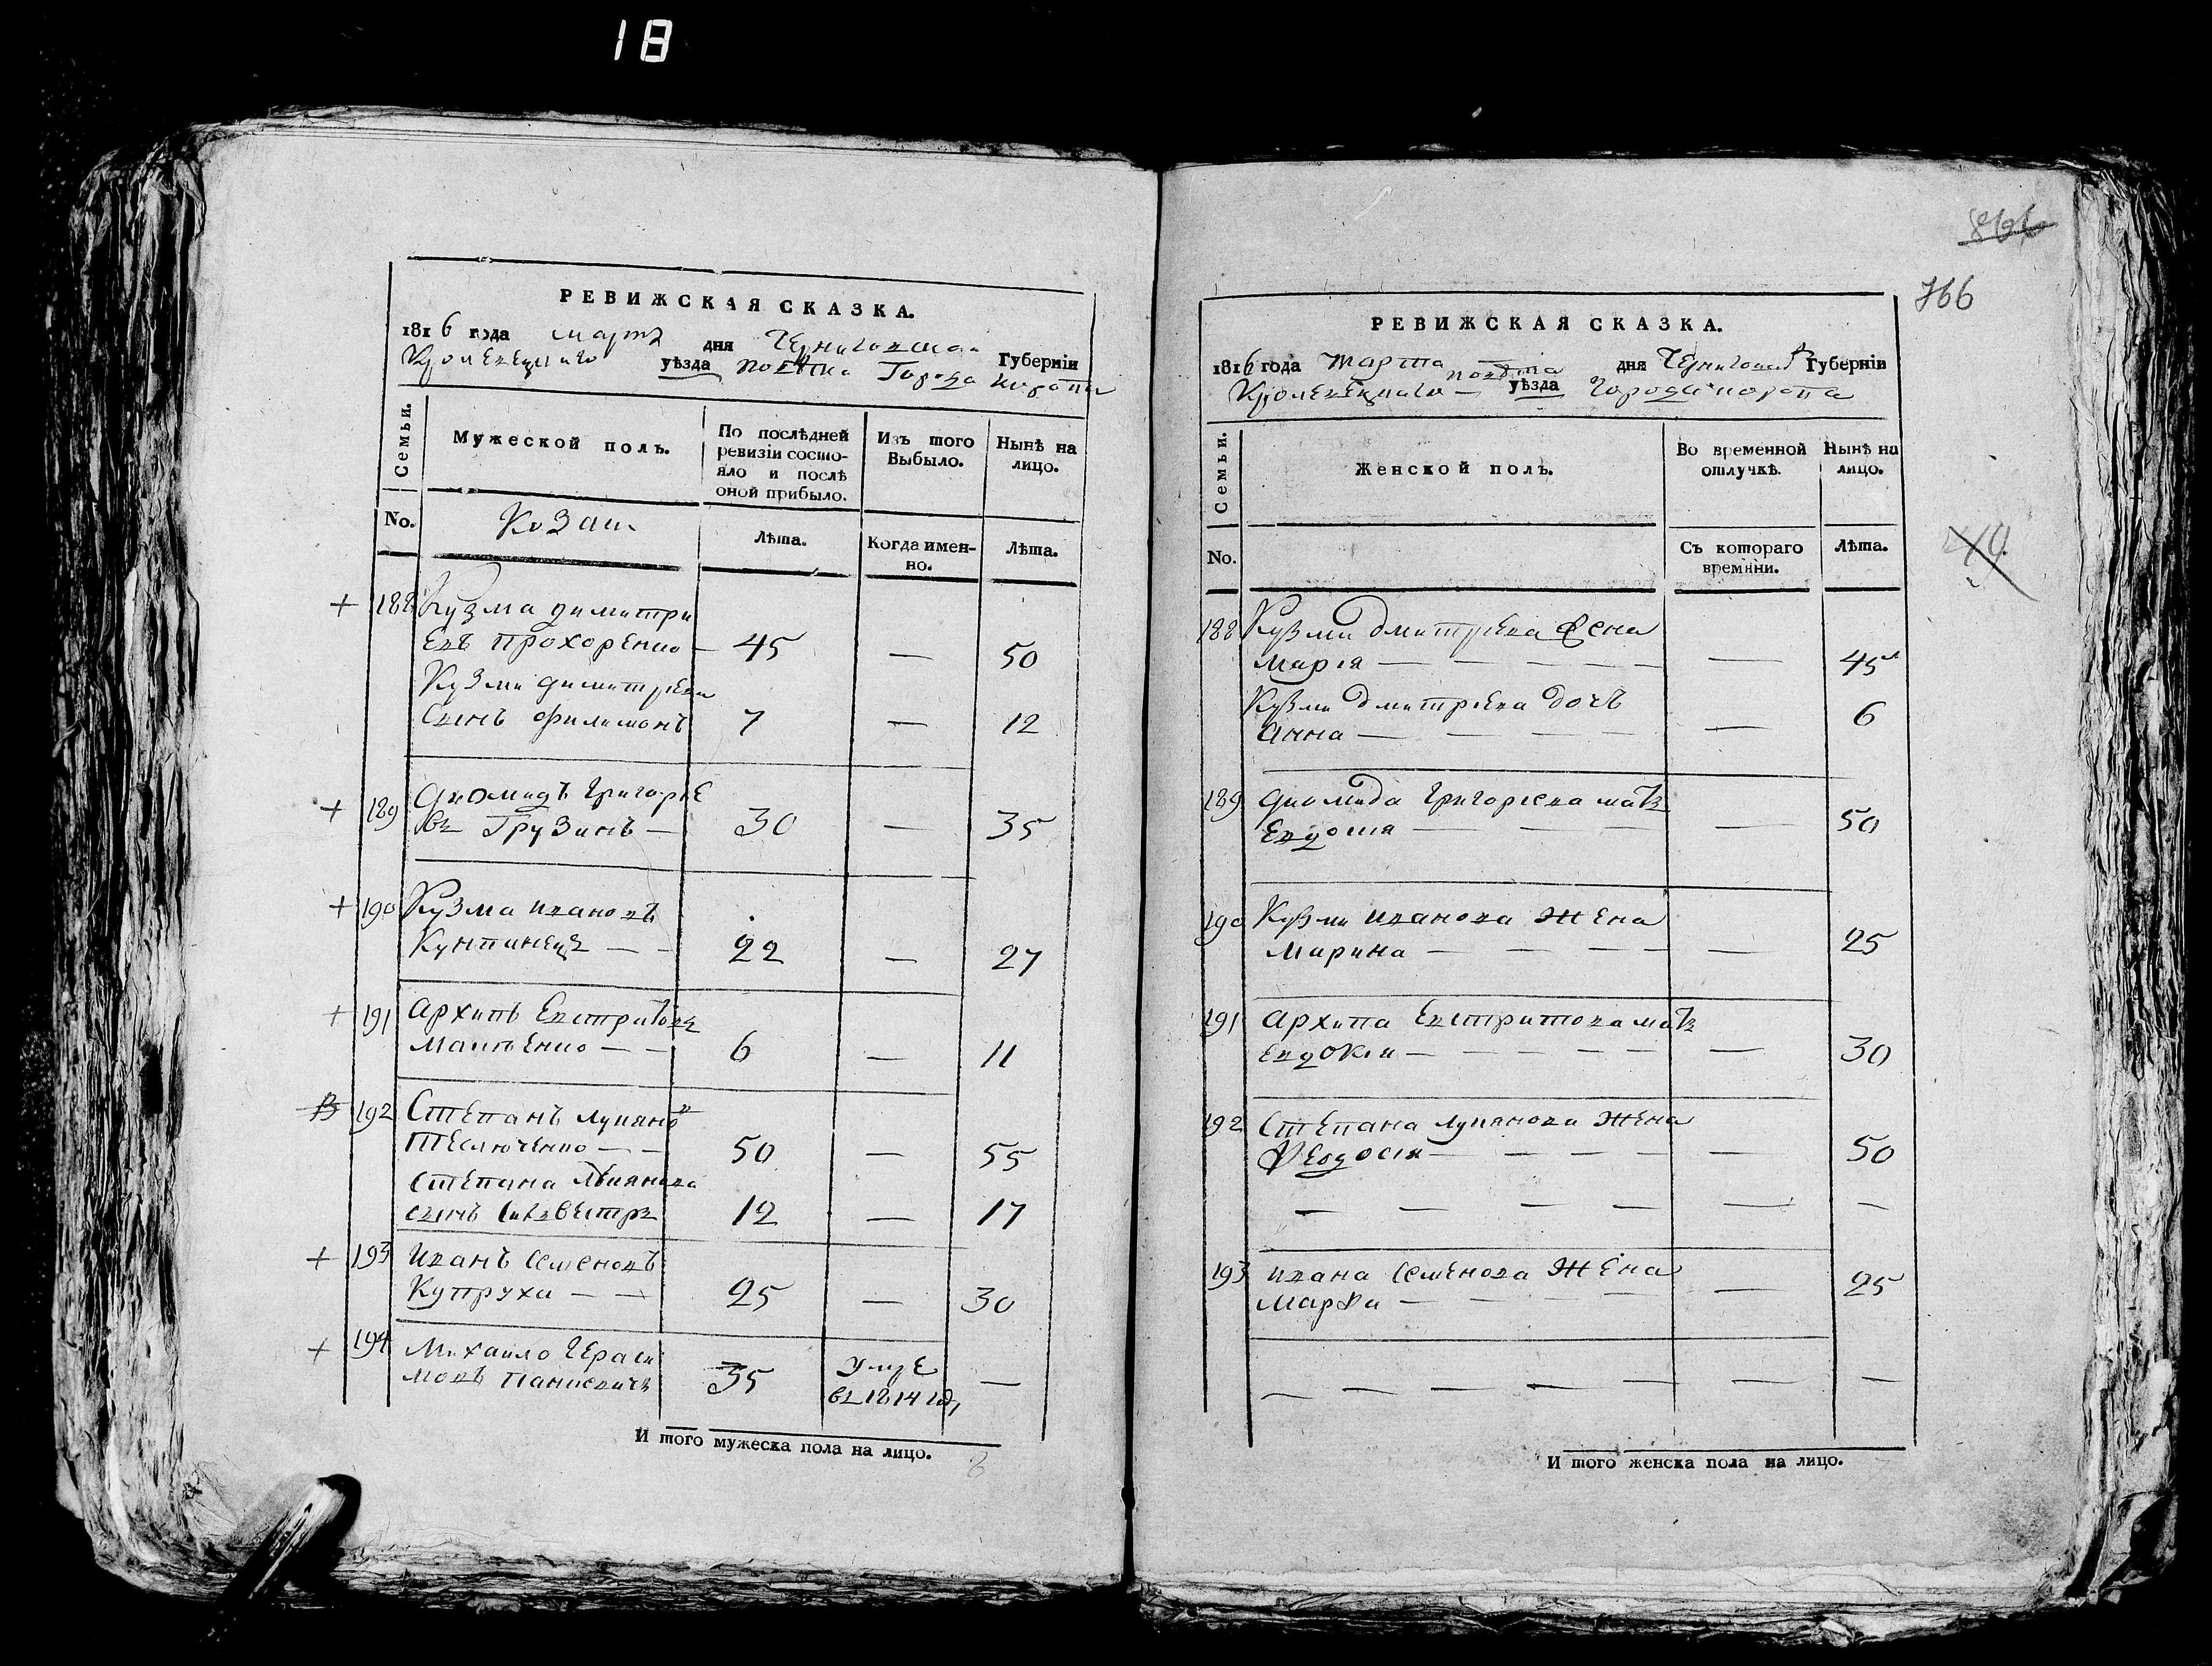 18
РЕВИЖСКАЯ СКАЗКА.
1816 года мартъ дня Черниговской Губерніи
Кролевецкаго уѣзда повѣта Города Коропа
Семьи.
Мужеской полъ.
По послѣдней ревизіи состояло и послѣ оной прибыло.
Изъ того Выбыло.
Нынѣ на лицо.
No.
Козаки
Лѣта.
Когда именно.
Лѣта.
+ 188 Кузма димитри
евъ прохоренко — 45 — 50
Кузми димитриева
сынъ филимонъ 7 — 12
+ 189 Диомидъ Григорие
въ Грузинъ — 30 — 35
+ 190 Кузма ивановъ
Кунпинецъ — — 22 — 27
+ 191 Архипъ Евстритовъ
— — 6 — 11
192 Степанъ Лукяно
Теслюченко — — 50 — 55
Степана Лукянова
сынъ Силвестръ 12 — 17
+ 193 иванъ Семеновъ
Купруха — — 25 — 30
+ 194 Михаило Гераси
мовъ Панкевичъ 35 умре —
въ 1814 год
И того мужеска пола на лицо.
6
866
766
РЕВИЖСКАЯ СКАЗКА.
1816 года Марта дня Чернигов Губерніи
Кролевецкаго повѣта уѣзда города коропа
Семьи.
Женской полъ.
Во временной отлучкѣ.
Нынѣ на лицо.
No.
Съ котораго времяни.
Лѣта.
188 Кузми дмитриева жена
Мария — — — — — — 45
Кузми дмитриева дочь
Анна — — — — — 6
189 Диомида Григориева мать
Евдокия — — — — 50
190 Кузми иванова жена
Марина — — — — — 25
191 Архипа Евстритова мать
Евдокия — — — — — — 30
192 Степана Лукянова жена
Феодосия — — — — — — 50
— — — — — —
193 ивана Семенова жена
Марфа — — — — — 25
— — — — — — —
И того женска пола на лицо.